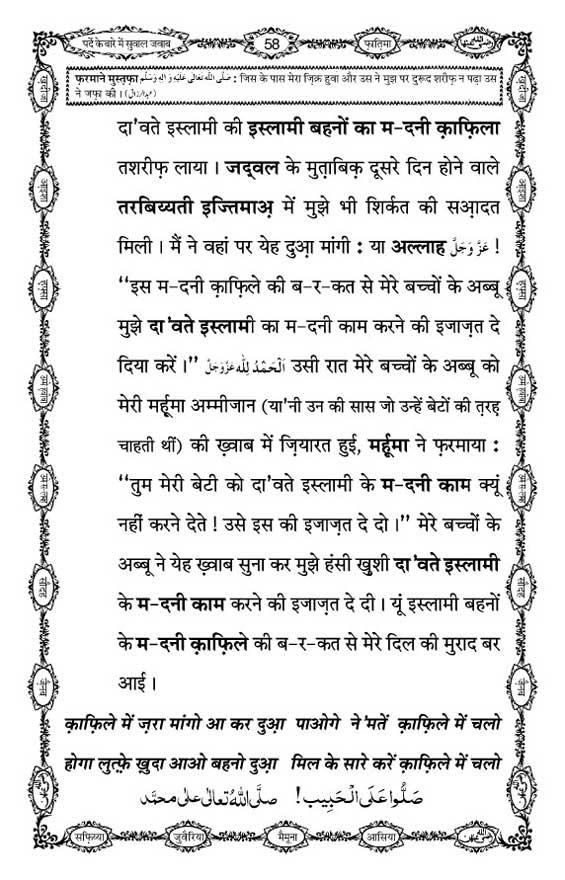 पर्दे के बारे में सुवाल जवाब
58
फ़ातिमा
फ़रमाने मुस्तफ़ा صَلَّى اللهُ تَعَالٰى عَلَيْهِ وَاٰلِهٖ وَسَلَّم : जिस के पास मेरा ज़िक्र हुवा और उस ने मुझ पर दुरूद शरीफ़ न पढ़ा उस
ने जफ़ा की। (عبدالرزاق)
दा'वते इस्लामी की इस्लामी बहनों का म-दनी क़ाफ़िला
तशरीफ़ लाया। जद्वल के मुत़ाबिक़ दूसरे दिन होने वाले
तरबिय्यती इज्तिमाअ़ में मुझे भी शिर्कत की सआ़दत
मिली। मैं ने वहां पर येह दुआ़ मांगी : या अल्लाह عَزَّوَجَلَّ !
‘‘इस म-दनी क़ाफ़िले की ब-र-कत से मेरे बच्चों के अब्बू
मुझे दा'वते इस्लामी का म-दनी काम करने की इजाज़त दे
दिया करें।’’ اَلْحَمْدُ لِلّٰه عَزَّوَجَلَّ उसी रात मेरे बच्चों के अब्बू को
मेरी मर्हूमा अम्मीजान (या'नी उन की सास जो उन्हें बेटों की त़रह़
चाहती थीं) की ख़्वाब में ज़ियारत हुई, मर्हूमा ने फ़रमाया :
‘‘तुम मेरी बेटी को दा'वते इस्लामी के म-दनी काम क्यूं
नहीं करने देते ! उसे इस की इजाज़त दे दो।’’ मेरे बच्चों के
अब्बू ने येह ख़्वाब सुना कर मुझे हंसी ख़ुशी दा'वते इस्लामी
के म-दनी काम करने की इजाज़त दे दी। यूं इस्लामी बहनों
के म-दनी क़ाफ़िले की ब-र-कत से मेरे दिल की मुराद बर
आई।
क़ाफ़िले में ज़रा मांगो आ कर दुआ़ पाओगे ने'मतें क़ाफ़िले में चलो
होगा लुत़्फ़े ख़ुदा आओ बहनो दुआ़ मिल के सारे करें क़ाफ़िले में चलो
صَلُّوا عَلَى الْحَبِيب! صلَّى اللهُ تعالٰى على محمَّد
सफ़िय्या
जुवैरिया
मैमूना
आसिया